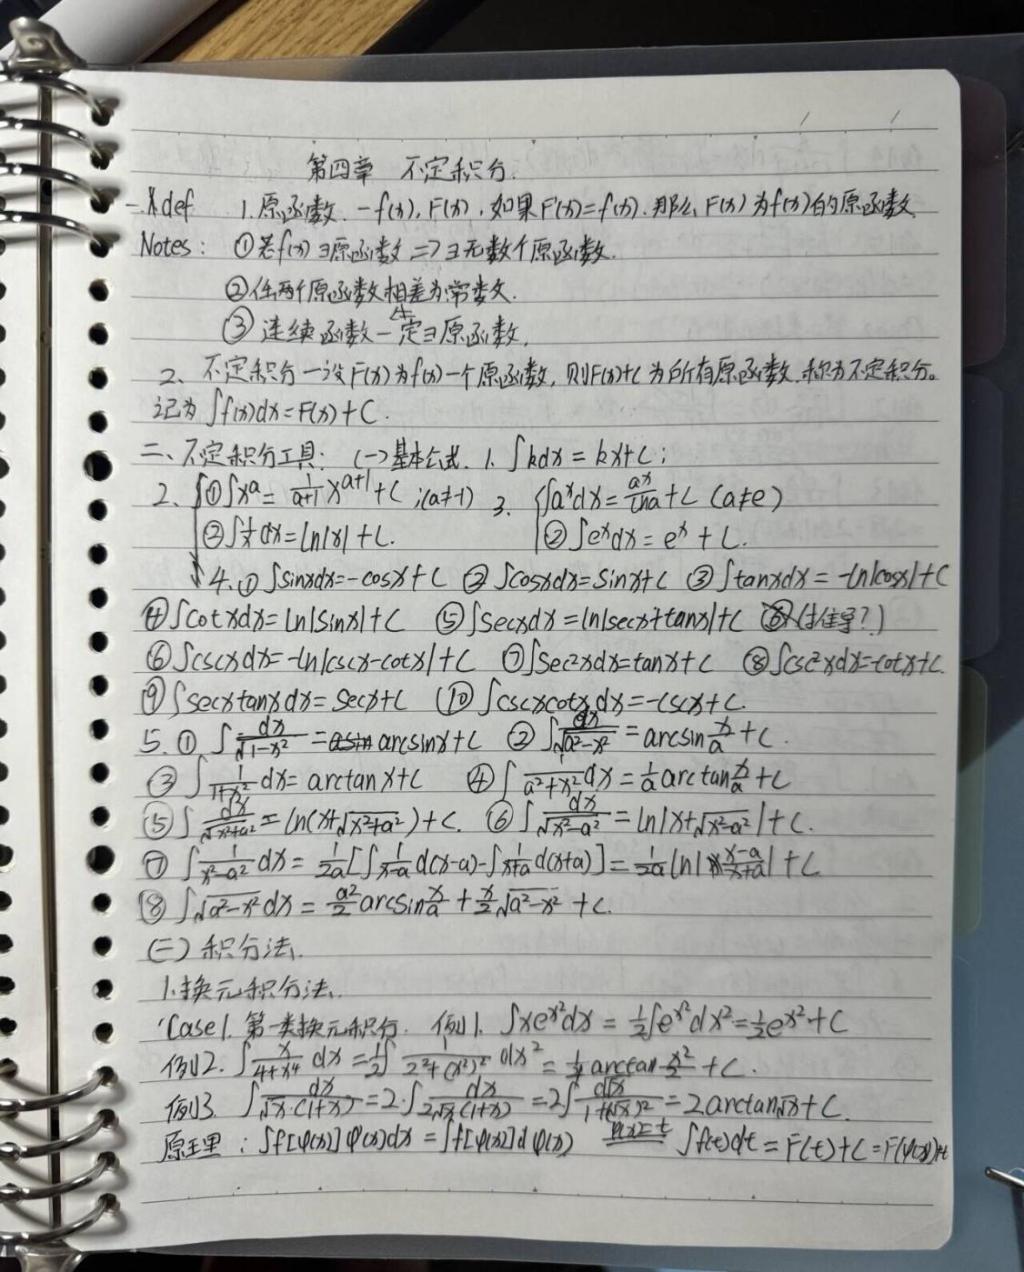 第四章 不定积分.
一、def 1.原函数. —f(x), F(x), 如果F'(x)=f(x). 那么, F(x)为f(x)的原函数.
Notes: ①若f(x)∃原函数 => ∃无数个原函数.
②任两个原函数相差为常数.
③ 连续函数一定∃原函数.
2、不定积分—设F(x)为f(x)一个原函数, 则F(x)+C为所有原函数, 称为不定积分。
记为∫f(x)dx=F(x)+C.
二、不定积分工具: (一)基本公式. 1. ∫kdx = kx+C;
2. ①∫xᵃ = 1/(a+1) x^(a+1) + C ;(a≠-1) 3. ①∫aˣdx = aˣ/lna + C (a≠e)
②∫1/x dx = ln|x| + C. ②∫eˣdx = eˣ + C.
4.① ∫sinxdx=-cosx+C ② ∫cosxdx=sinx+C ③ ∫tanxdx = -ln|cosx|+C
④∫cotxdx=ln|sinx|+C ⑤∫secxdx=ln|secx+tanx|+C
⑥∫cscxdx=-ln|cscx-cotx|+C ⑦∫sec²xdx=tanx+C ⑧∫csc²xdx=-cotx+C.
⑨∫secxtanxdx=secx+C ⑩∫cscxcotxdx=-cscx+C.
5.① ∫dx/√(1-x²) = arcsinx+C ② ∫dx/√(a²-x²) = arcsin x/a + C.
③ ∫1/(1+x²) dx = arctanx+C ④ ∫1/(a²+x²) dx = 1/a arctan x/a + C
⑤ ∫dx/√(x²+a²) = ln(x+√(x²+a²))+C. ⑥ ∫dx/√(x²-a²) = ln|x+√(x²-a²)|+C.
⑦ ∫1/(x²-a²) dx = 1/2a [∫1/(x-a) d(x-a) - ∫1/(x+a) d(x+a)] = 1/2a ln|(x-a)/(x+a)| + C
⑧ ∫√(a²-x²) dx = a²/2 arcsin x/a + x/2 √(a²-x²) + C.
(二)积分法.
1.换元积分法.
Case1. 第一类换元积分. 例1. ∫xe^(x²)dx = 1/2∫e^(x²)dx² = 1/2 e^(x²)+C
例2. ∫x/(4+x⁴) dx = 1/2∫1/(2²+(x²)²) dx² = 1/4 arctan x²/2 + C.
例3. ∫dx/(√x·(1+x)) = 2·∫dx/(2√x·(1+x)) = 2∫d√x/(1+(√x)²) = 2arctan√x+C.
原理: ∫f[φ(x)]φ'(x)dx = ∫f[φ(x)]dφ(x) φ(x)=t ∫f(t)dt = F(t)+C = F(φ(x))+C